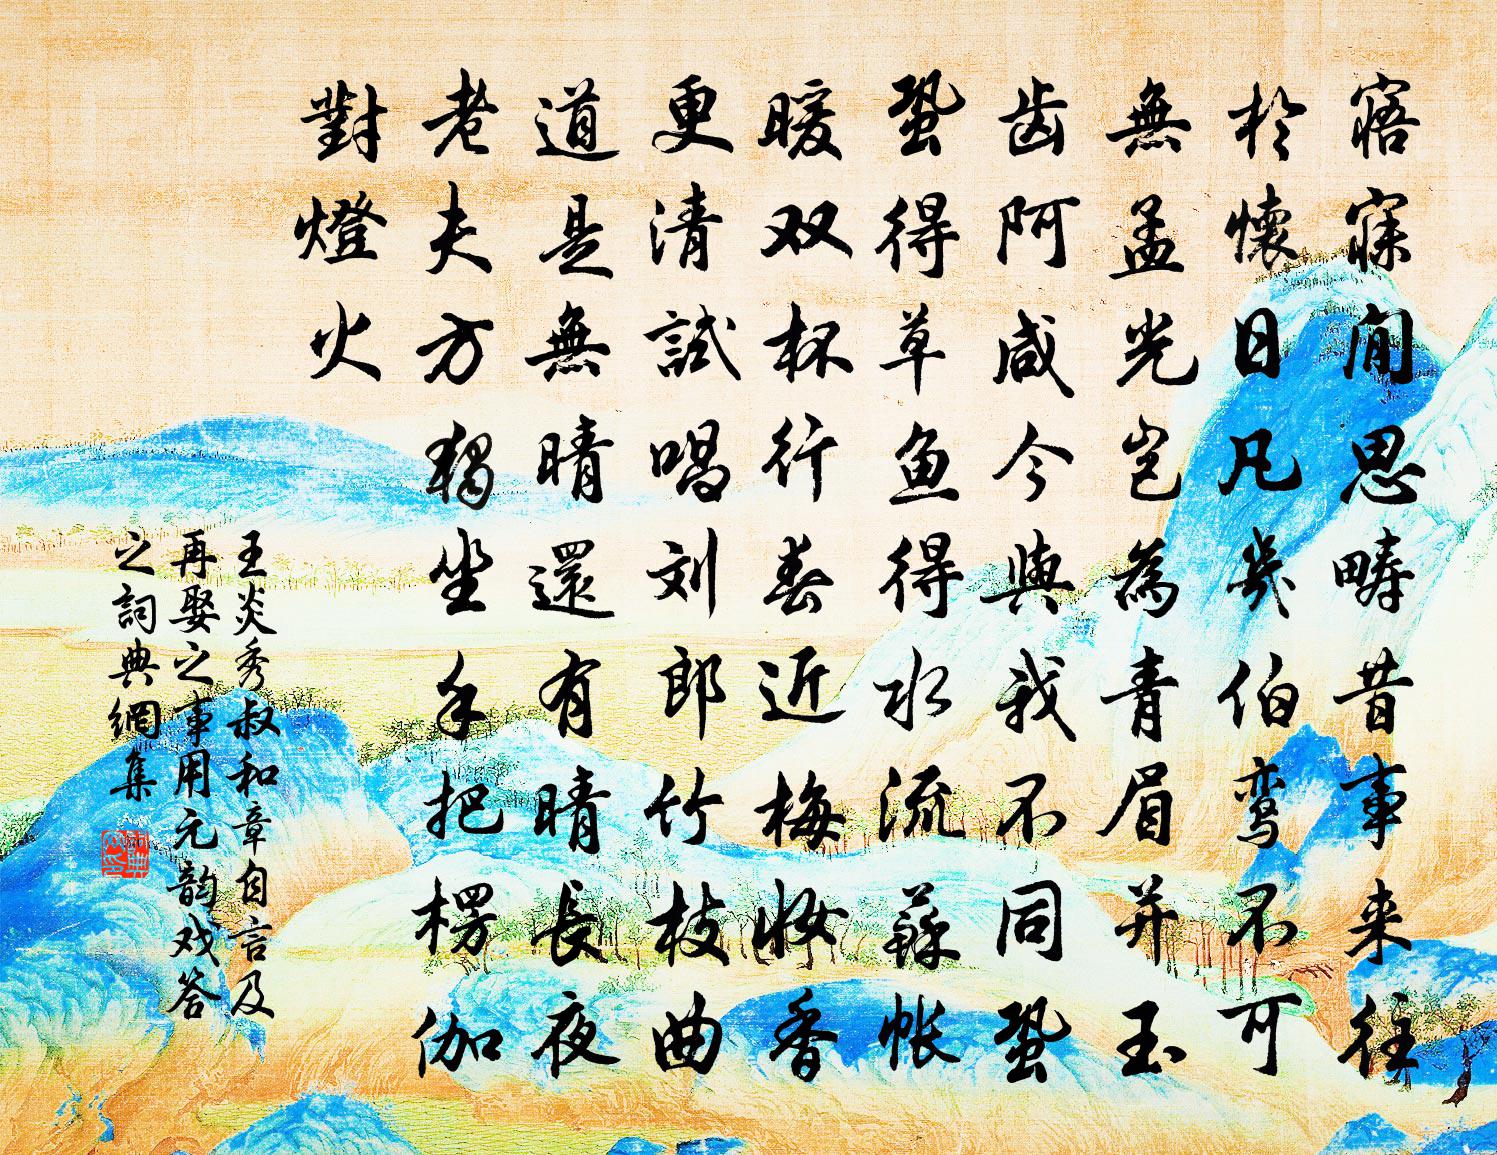 寤寐閒思疇昔事来往
於懷日凡幾伯鸾不可
無孟光岂為青眉并玉
齿阿咸今與我不同蛩
蛩得草鱼得水流蘇帐
暖双杯行春近梅妝香
更清試唱刘郎竹枝曲
道是無晴還有晴長夜
老夫方獨坐手把楞伽
對燈火
王炎秀叔和章自言及
再娶之事用元韵戏答
之詞典網集